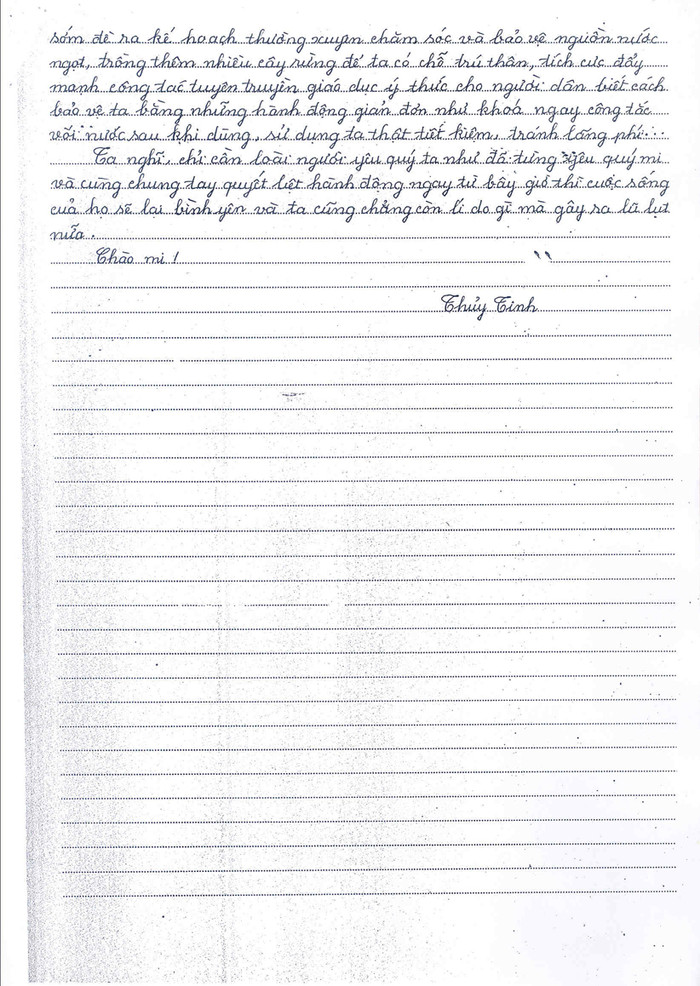 sớm đề ra kế hoạch thường xuyên chăm sóc và bảo vệ nguồn nước
ngọt, trồng thêm nhiều cây rừng để ta có chỗ trú thân, tích cực đẩy
mạnh công tác tuyên truyền giáo dục ý thức cho người dân biết cách
bảo vệ ta bằng những hành động giản đơn như khoá ngay công tắc
vòi nước sau khi dùng, sử dụng ta thật tiết kiệm, tránh lãng phí...
Ta nghĩ, chỉ cần loài người yêu quý ta như đã từng yêu quý mi
và cùng chung tay quyết liệt hành động ngay từ bây giờ thì cuộc sống
của họ sẽ lại bình yên và ta cũng chẳng còn lí do gì mà gây ra lũ lụt
nữa.
Chào mi! "
Thủy Tinh